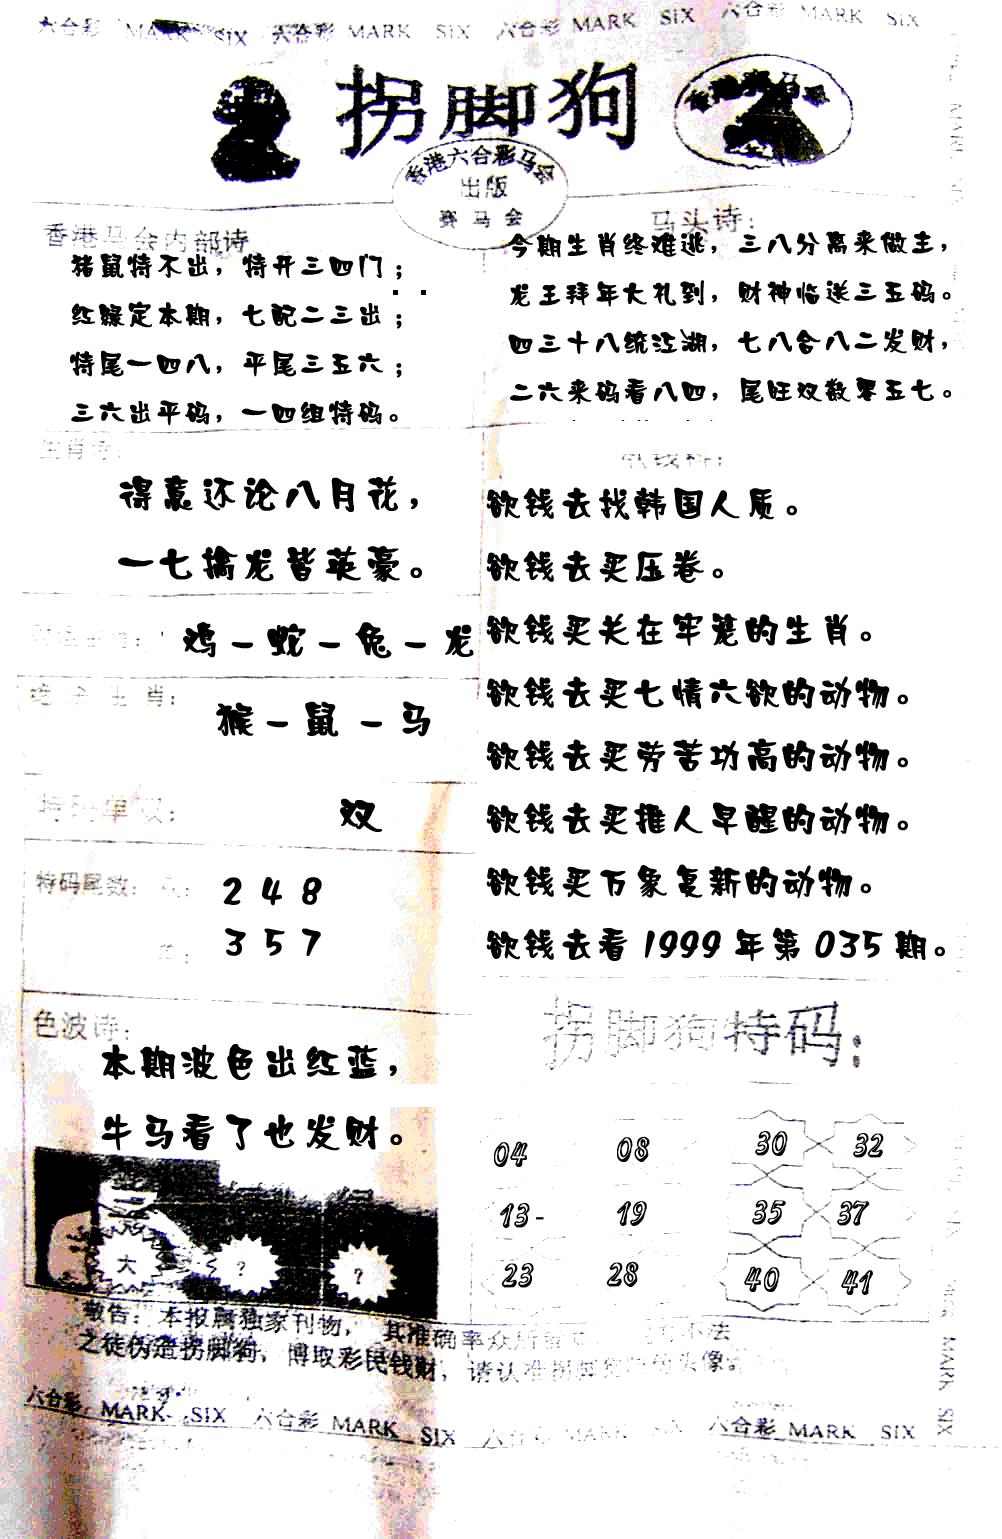 六合彩 MARK SIX 六合彩 MARK SIX 六合彩 MARK SIX 六合彩 MARK SIX
拐脚狗
香港六合彩马会
出版
赛马会
香港马会内部诗
猪鼠特不出，特开三四门；
红绿定本期，七配二三出；
特尾一四八，平尾三五六；
三六出平码，一四组特码。
马头诗：
今期生肖终难逃，三八分离来做主，
龙王拜年大礼到，财神临送三五码。
四三十八统江湖，七八合八二发财，
二六来码看八四，尾旺双数零五七。
生肖诗：
得意还论八月花，
一七擒龙皆英豪。
鸡－蛇－兔－龙
绝杀生肖：
猴－鼠－马
特码单双：
双
特码尾数：
2 4 8
3 5 7
色波诗：
本期波色出红蓝，
牛马看了也发财。
大 ? ?
欲钱去找韩国人质。
欲钱去买压卷。
欲钱买关在牢笼的生肖。
欲钱去买七情六欲的动物。
欲钱去买劳苦功高的动物。
欲钱去买推人早醒的动物。
欲钱买万象复新的动物。
欲钱去看 1999 年第 035 期。
拐脚狗特码：
04 08 30 32
13- 19 35 37
23 28 40 41
敬告：本报属独家刊物，其准确率众所 不法
之徒伪造拐脚狗，博取彩民钱财，请认准拐脚 头像。
六合彩 MARK SIX 六合彩 MARK SIX 六合彩 MARK SIX 六合彩 MARK SIX
MARK SIX